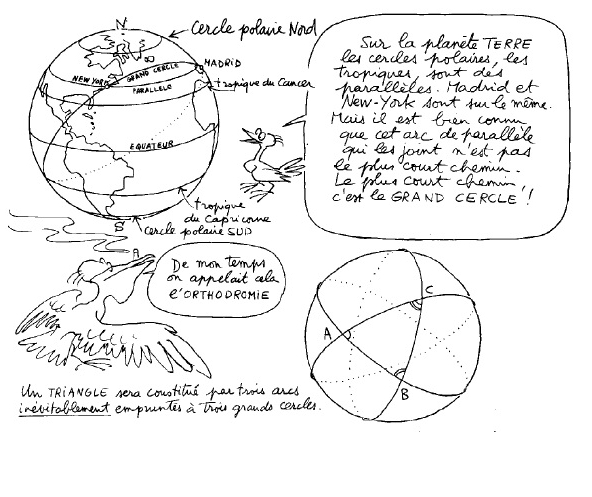 N
Cercle polaire Nord
MADRID
GRAND CERCLE
NEW YORK
PARALLELO
tropique du Cancer
EQUATEUR
tropique
du Capricorne
cercle polaire SUD
S
Sur la planète TERRE
les cercles polaires, les
tropiques, sont des
parallèles. Madrid et
New-York sont sur le même.
Mais il est bien connu
que cet arc de parallèle
qui les joint n'est pas
le plus court chemin.
Le plus court chemin,
c'est le GRAND CERCLE !
De mon temps
on appelait cela
l'ORTHODROMIE
A
C
B
Un TRIANGLE sera constitué par trois arcs
inévitablement empruntés à trois grands cercles.